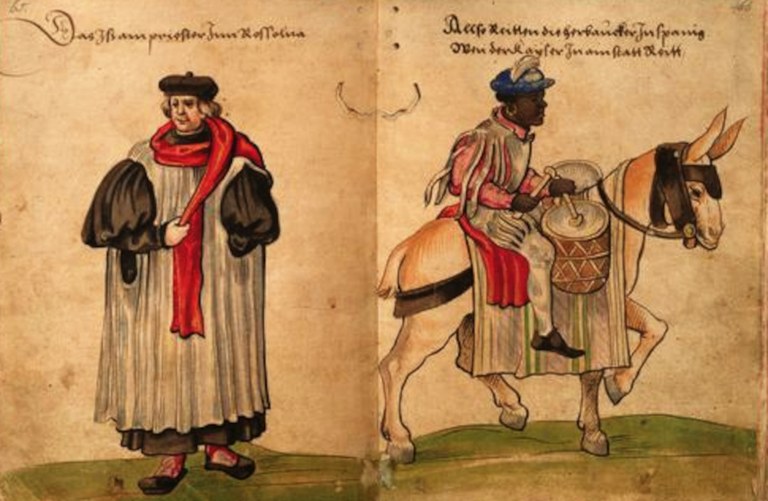 65.
Das Ist ain priester Inn Rossolna
66
Allso Reitten die herbaucker In Spanig
Wen der kayser In ain statt Reitt